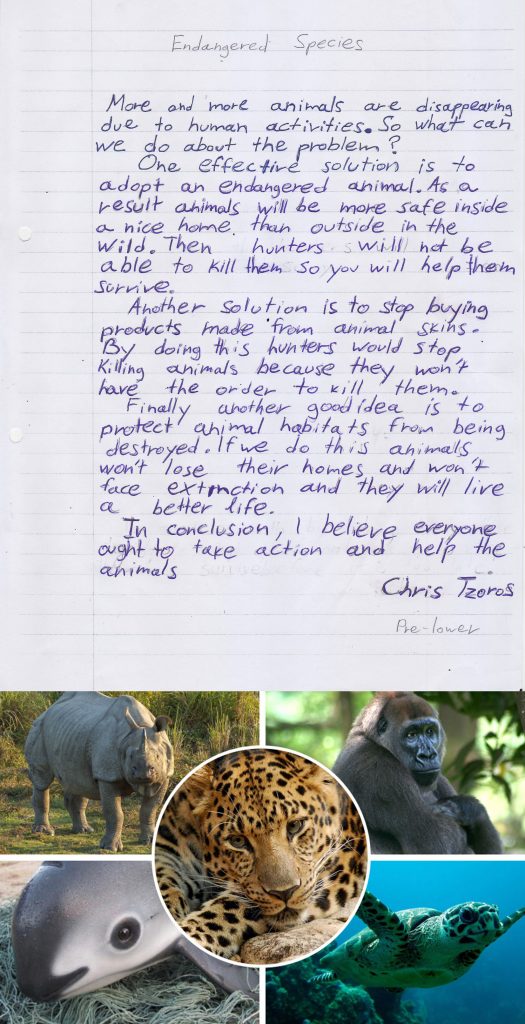 Endangered Species
More and more animals are disappearing
due to human activities. So what can
we do about the problem?
One effective solution is to
adopt an endangered animal. As a
result animals will be more safe inside
a nice home than outside in the
wild. Then hunters will not be
able to kill them so you will help them
survive.
Another solution is to stop buying
products made from animal skins.
By doing this hunters would stop
killing animals because they won't
have the order to kill them.
Finally another good idea is to
protect animal habitats from being
destroyed. If we do this animals
won't lose their homes and won't
face extinction and they will live
a better life.
In conclusion, I believe everyone
ought to take action and help the
animals
Chris Tzoros
Pre-lower